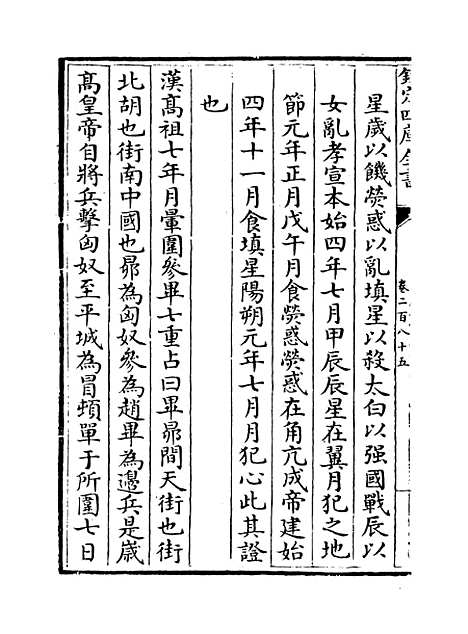 欽定四庫全書
卷二百八十五
星歲以饑熒惑以亂填星以殺太白以强國戰辰以
女亂孝宣本始四年七月甲辰辰星在翼月犯之地
節元年正月戊午月食熒惑熒惑在角亢成帝建始
四年十一月食填星陽朔元年七月月犯心此其證
也
漢髙祖七年月暈圍參畢七重占曰畢昴間天街也街
北胡也街南中國也昴為匈奴參為趙畢為邊兵是嵗
髙皇帝自將兵擊匈奴至平城為冒頓單于所圍七日